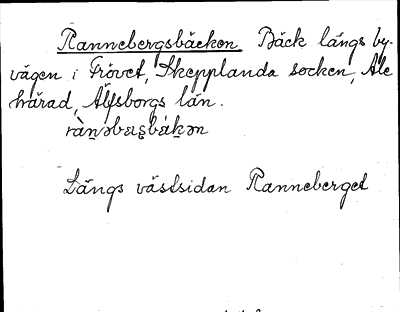 Rannebergsbäcken Bäck längs by-
vägen i Frövet, Skepplanda socken, Ale
härad, Älfsborgs län.
Längs västsidan Ranneberget